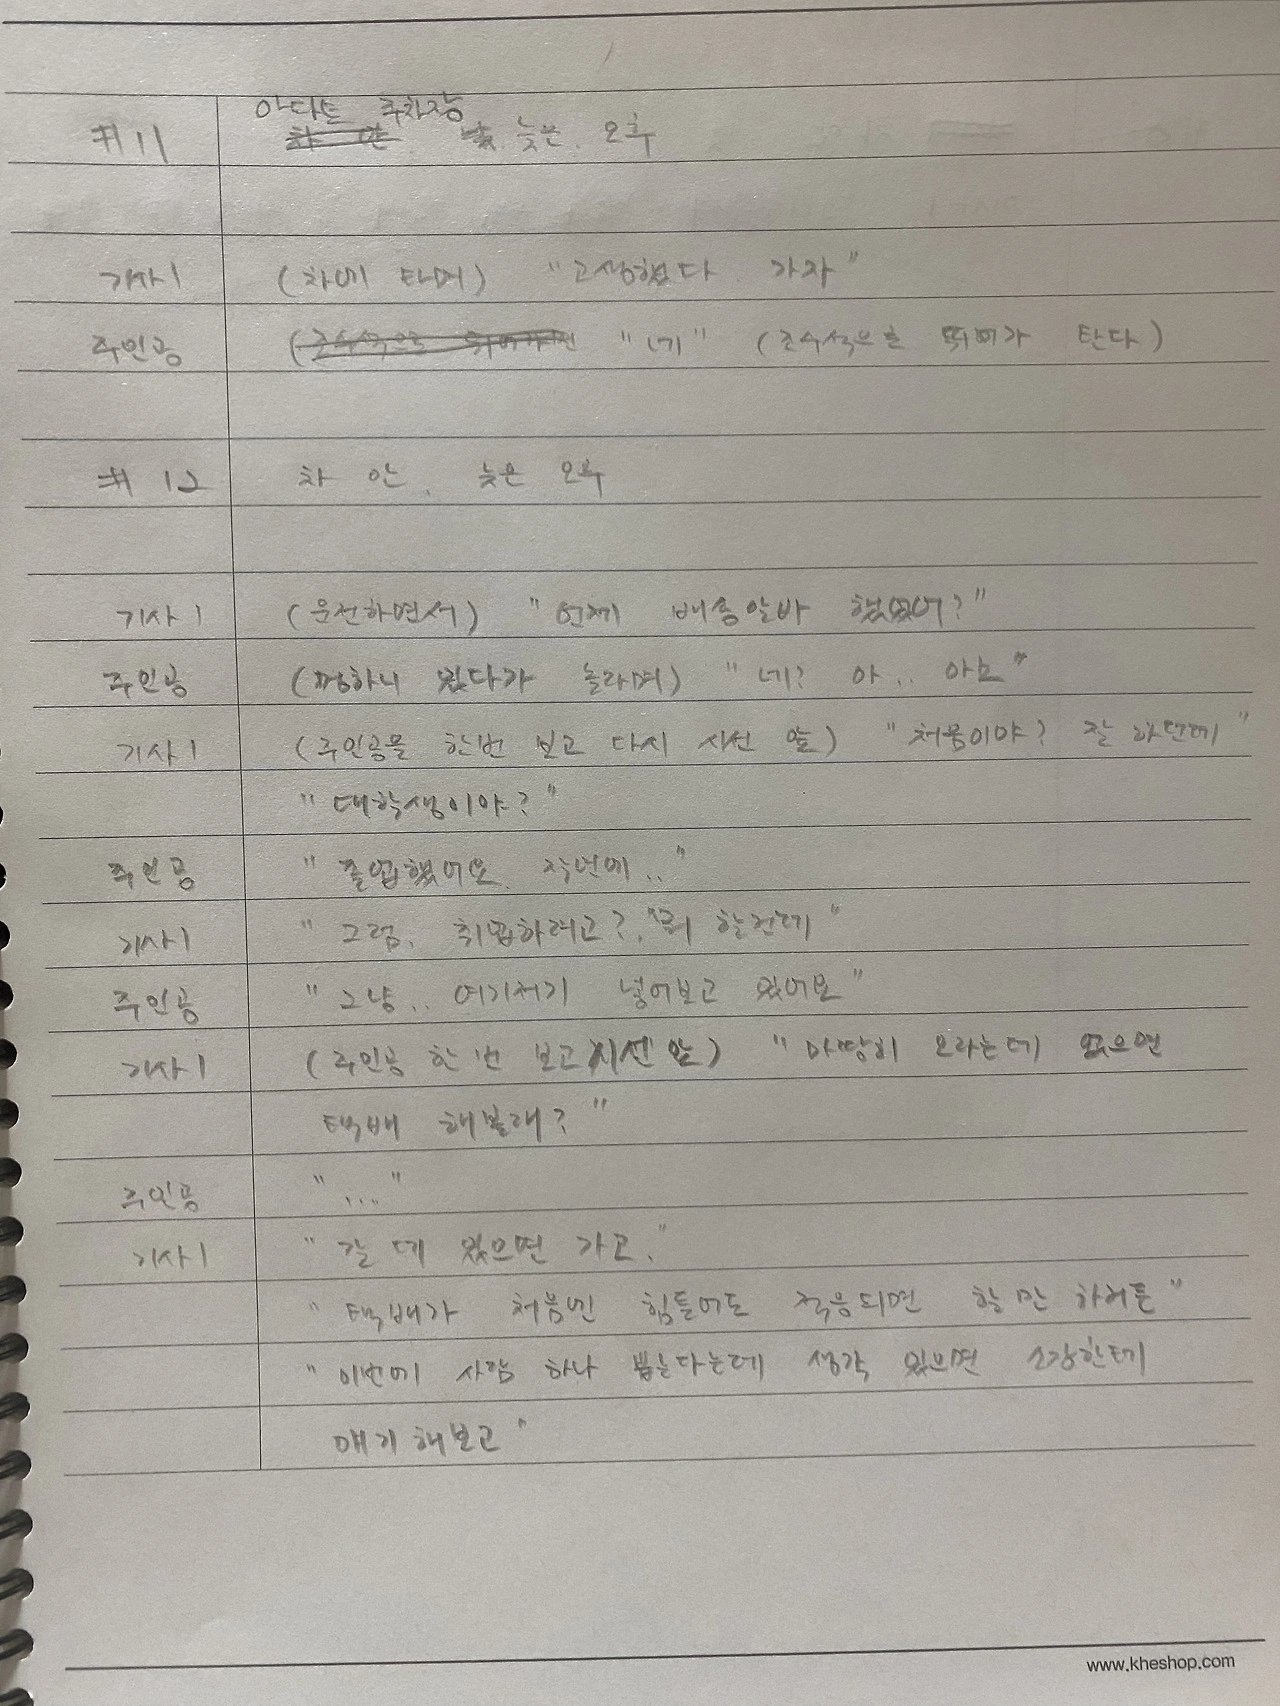 아파트 주차장
#11 차 안. 늦은 오후
기사1 (차에 타며) "고생했다 가자"
주인공 (조수석으로 뛰어가면 "네" (조수석으로 뛰어가 탄다)
#12 차 안. 늦은 오후
기사1 (운전하면서) "언제 배송알바 했었어?"
주인공 (멍하니 있다가 놀라며) "네? 아.. 아뇨"
기사1 (주인공을 한번 보고 다시 시선 앞) "처음이야? 잘 하던데"
"대학생이야?"
주인공 "졸업했어요. 작년에.."
기사1 "그럼. 취업하려고?, "뭐 할건데"
주인공 "그냥.. 여기저기 넣어보고 있어요"
기사1 (주인공 한 번 보고 시선 앞) "마땅히 오라는데 없으면
택배 해볼래?"
주인공 "...."
기사1 "갈 데 있으면 가고."
"택배가 처음엔 힘들어도 적응되면 할 만 하거든"
"이번에 사람 하나 뽑는다는데 생각 있으면 소장한테
얘기해보고"
www.kheshop.com